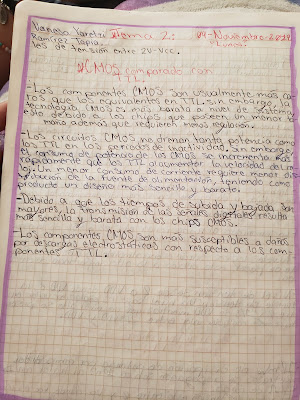 Vanessa Yaretzi Tema 2. 04-Noviembre-2024
Ramírez Tapia. Lunes.
les de tensión entre 2V-Vcc.
*CMOS comparado con
TTL
-Los componentes CMOS son usualmente más ca-
ros que los equivalentes en TTL. sin embargo, la
tecnología CMOS es más barata a nivel de sistema
esto debido a los chips que poseen un menor ta-
maño además que requieren menos regulación.
-Los circuitos CMOS no drenan tanta potencia como
los TTL en los periodos de inactividad, sin embargo
el consumo de potencia de los CMOS se incrementa más
rápidamente que los TTL al aumentar la velocidad de re-
loj. Un menor consumo de corriente requiere menor dis-
tribución de la fuente de alimentación, teniendo como
producto un diseño más sencillo y barato.
-Debido a que los tiempos de subida y bajada son
mayores, la transmisión de las señales digitales resulta
más sencilla y barata con los chips CMOS.
-Los componentes CMOS son más susceptibles a daños
por descargas electrostáticas con respecto a los com-
ponentes TTL.